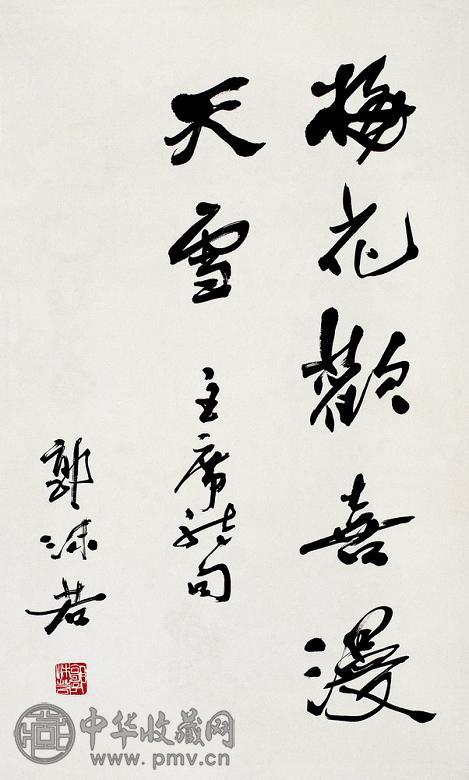 梅花歡喜漫
天雪 主席詩句
郭沫若
中华收藏网
www.pmv.cn